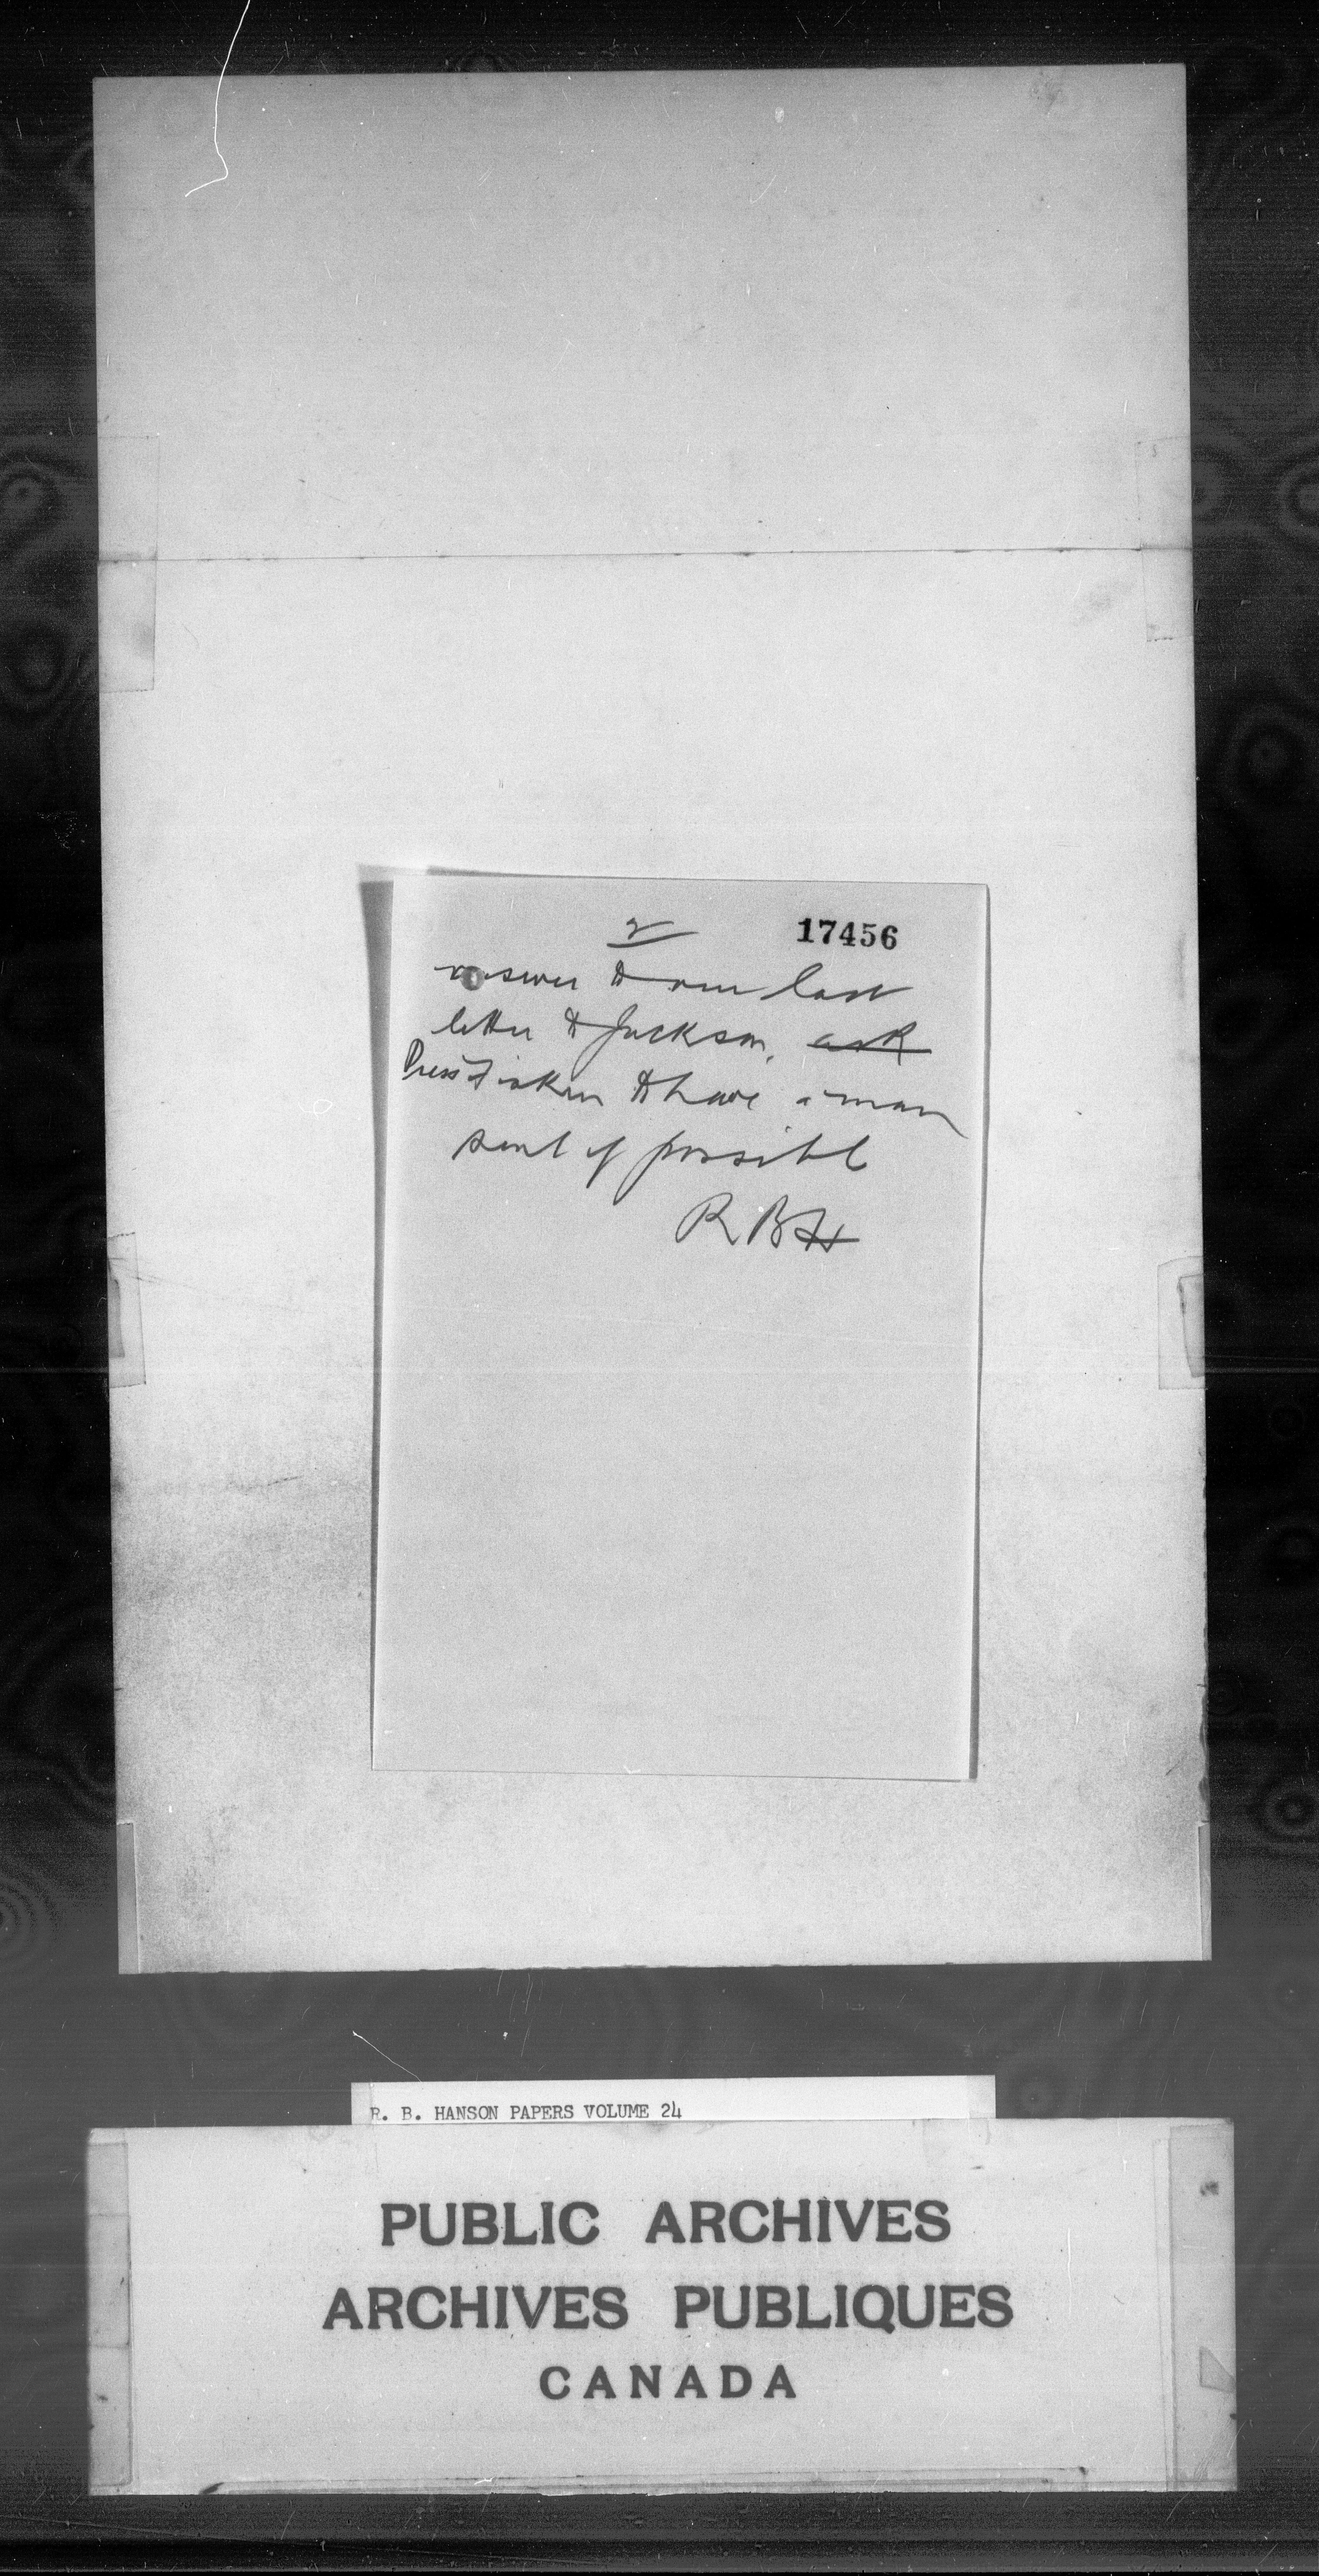 2
17456
answer to our last
letter to Jackson, ask
Press to have a man
sent if possible
RBH
R. B. HANSON PAPERS VOLUME 24
PUBLIC ARCHIVES
ARCHIVES PUBLIQUES
CANADA